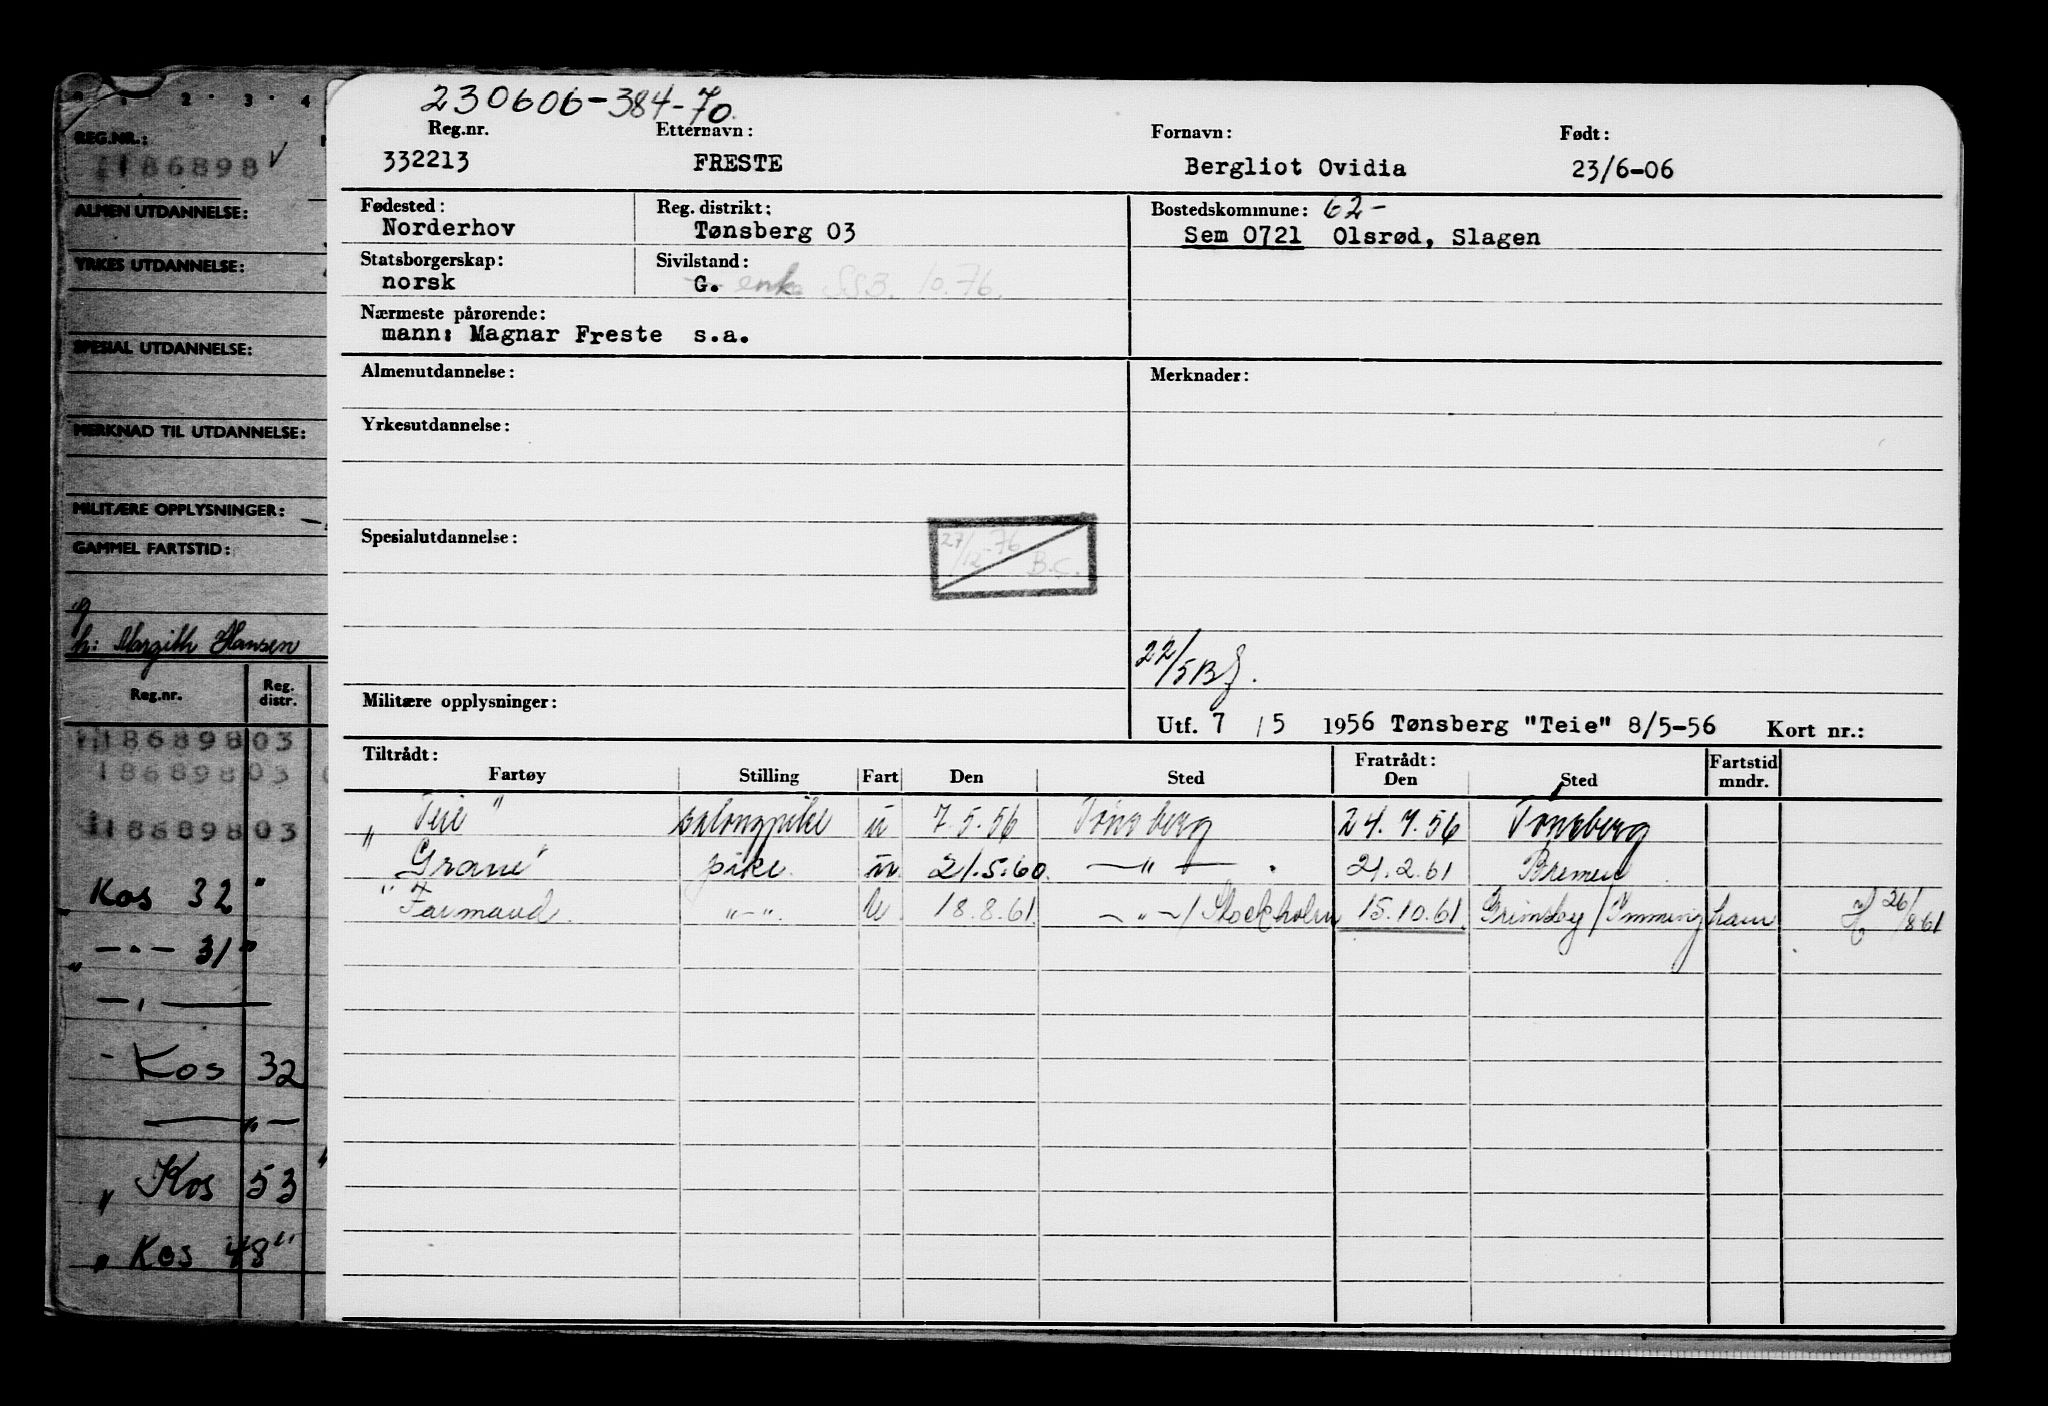 1 2 3 4
REG.NR.:
186898 V
ALMEN UTDANNELSE:
YRKES UTDANNELSE:
SPESIAL UTDANNELSE:
MERKNAD TIL UTDANNELSE:
MILITÆRE OPPLYSNINGER:
GAMMEL FARTSTID:
h: Margith Hansen
Reg.nr. Reg. distr.
186898 03
186898 03
186898 03
Kos 32 "
" — " — 31 "
— " —
" Kos 32
— " —
" Kos 53 "
" Kos 48 "
230606-384-70.
Reg.nr. Etternavn: Fornavn: Født:
332213 FRESTE Bergliot Ovidia 23/6-06
Fødested: Reg. distrikt: Bostedskommune: 62-
Norderhov Tønsberg 03 Sem 0721 Olsrød, Slagen
Statsborgerskap: Sivilstand:
norsk G. enke SSB. 10.76.
Nærmeste pårørende:
mann: Magnar Freste s.a.
Almenutdannelse: Merknader:
Yrkesutdannelse:
Spesialutdannelse:
27/12-76 B.C.
22/5 B
Militære opplysninger:
Utf. 7 / 5 1956 Tønsberg "Teie" 8/5-56 Kort nr.:
Tiltrådt: Fratrådt: Fartstid
Fartøy Stilling Fart Den Sted Den Sted mndr.
" Teie " salongpike u 7.5.56 Tønsberg 24.7.56 Tønsberg
" Grane " pike u 21.5.60. — " — 21.2.61 Bremen
" Farmand " — " — 18.8.61. — " — / Stockholm 15.10.61. Grimsby / Immingham 26/8 61